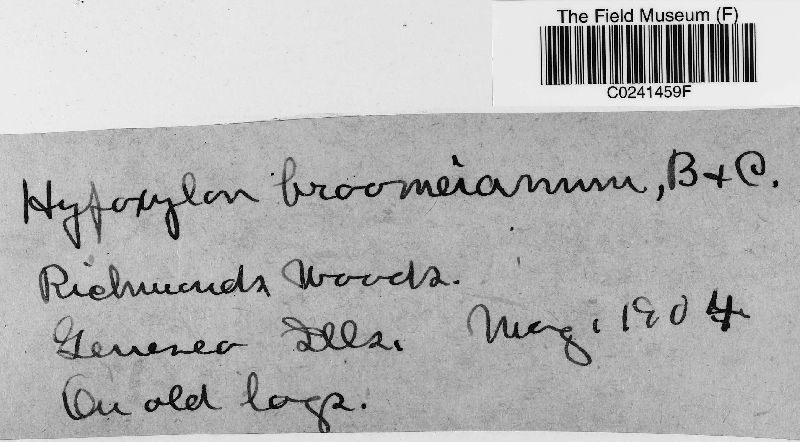 The Field Museum (F)
C0241459F
Hypoxylon broomeianum, B & C.
Richmonds Woods.
Geneseo Ills. May, 1904
On old logs.